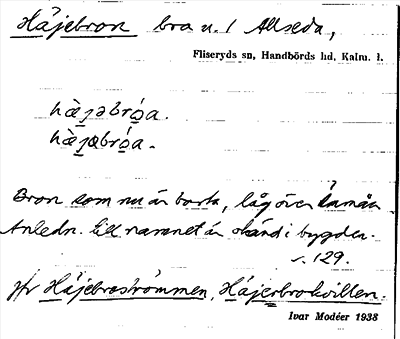 Häjebron bro u. l Allseda,
Fliseryds sn, Handbörds hd, Kalm. l.
hæ̀jəbrόa.
hæ̀jəbrόa.
Bron som nu är borta, låg över Emån
Anledn. till namnet är okänd i bygden.
s. 129.
jfr Häjebroströmmen, Häjerbrokvillen.
Ivar Modéer 1938